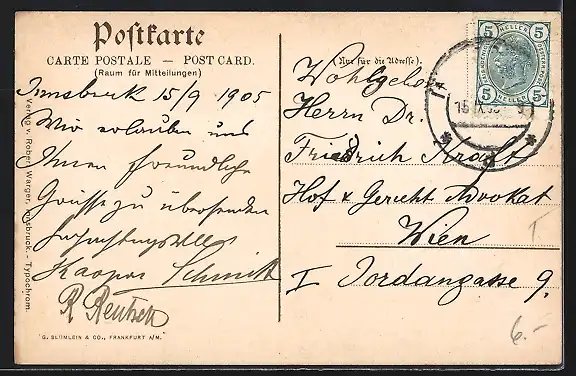 Postkarte
CARTE POSTALE — POST CARD.
(Raum für Mitteilungen)
(Nur für die Adresse).
Innsbruck 15/9 1905
Wir erlauben uns
Ihnen freundliche
Grüsse zu übersenden
Hochachtungsvoll
Kaspar Schmitt
R Rentsch
Wohlgeb
Herrn Dr.
Friedrich
Hof & Gericht Advokat
Wien
I Jordangasse 9.
6.-
5 5
HELLER
5 5
Verlag v. Robert Warger, Innsbruck. - Typochrom.
G. BLÜMLEIN & CO., FRANKFURT A/M.